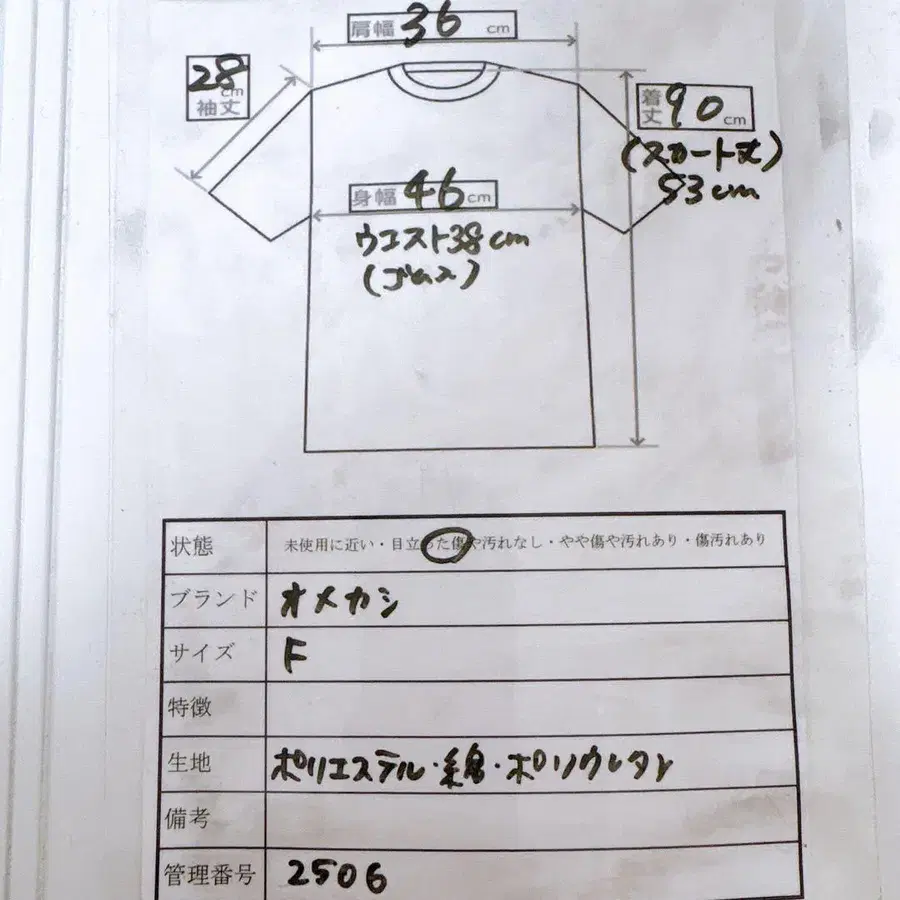 肩幅 36 cm
28 cm
袖丈
着丈 90 cm
(スカート丈)
53cm
身幅 46 cm
ウエスト38cm
(ゴム入)
状態 未使用に近い・目立った傷や汚れなし・やや傷や汚れあり・傷汚れあり
ブランド オメカシ
サイズ F
特徴
生地 ポリエステル・綿・ポリウレタン
備考
管理番号 2506